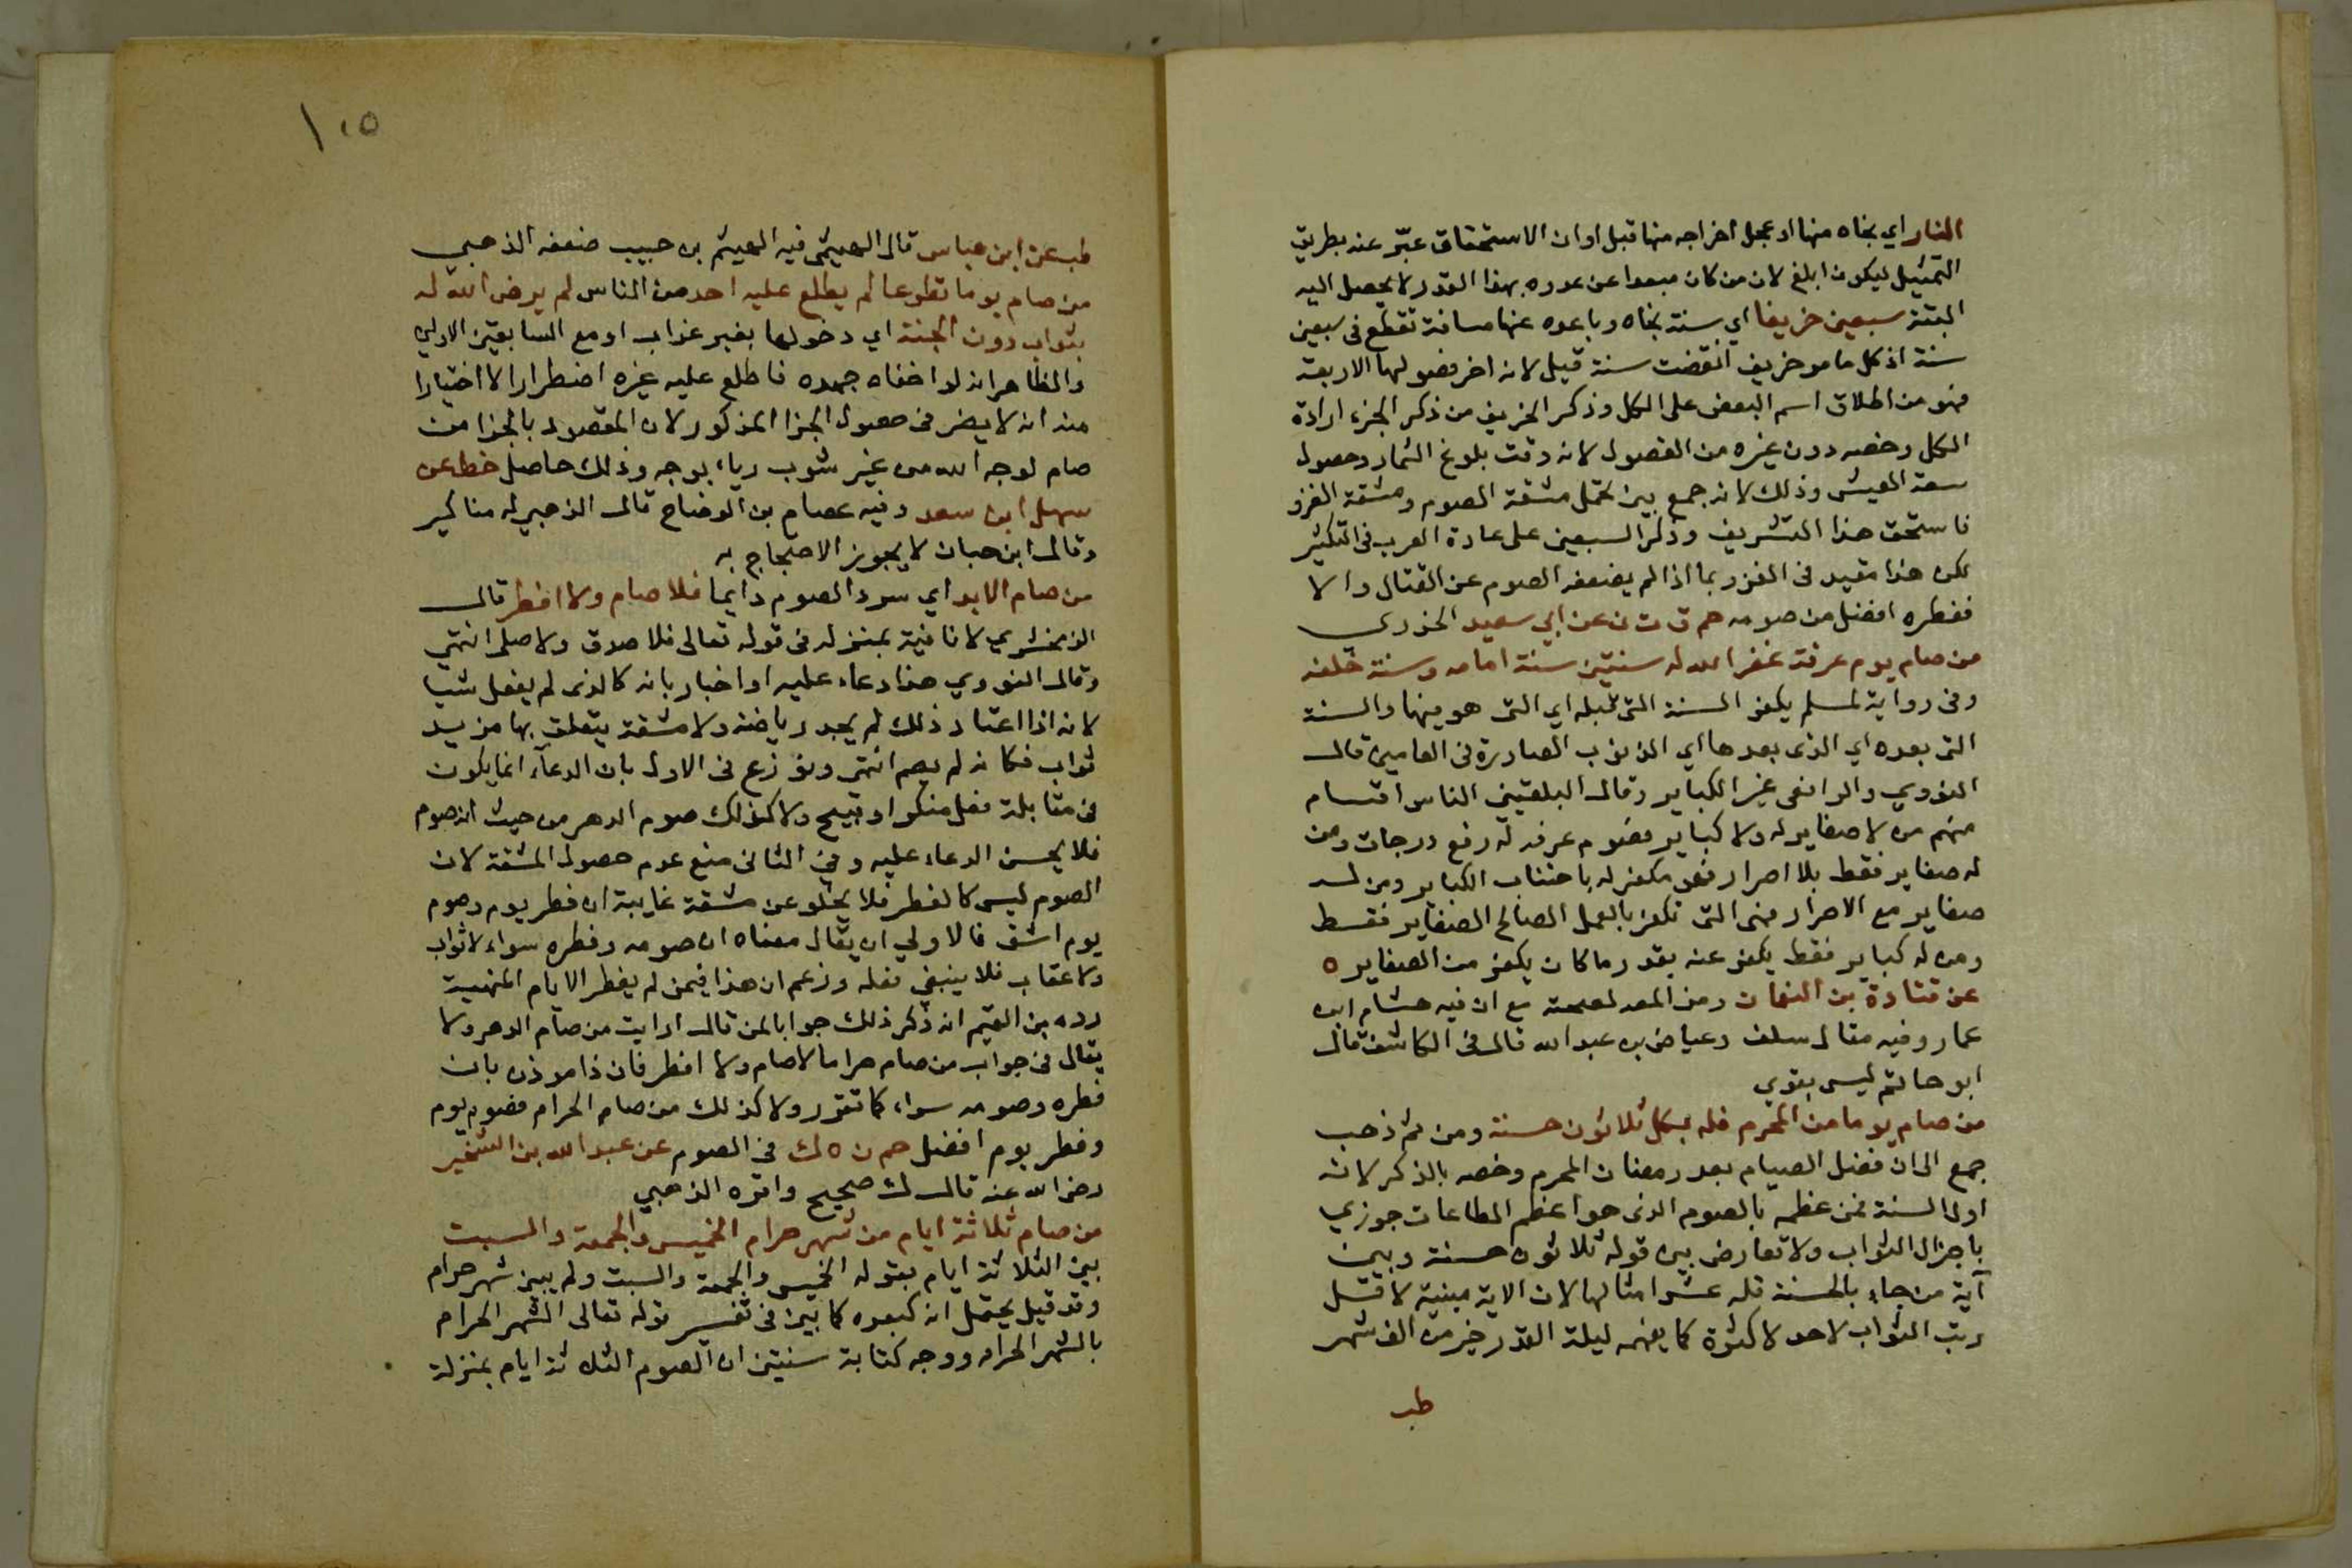 النار اي نجاه منها او عجل اخراجه منها قبل اوان الاستحقاق عبّر عنه بطريق
التمثيل ليكون ابلغ لان من كان مبعدا عن عدوه بهذا القدر لا يحصل اليه
البتة سبعين خريفا اي سنة نجاه وباعده عنها مسافة تقطع في سبعين
سنة اذ كل ما مر خريف انقضت سنة قيل لانه اخر فصولها الاربعة
فهو من اطلاق اسم البعض على الكل وذكر الخريف من ذكر الجزء ارادة
الكل وخصه دون غيره من الفصول لانه وقت بلوغ الثمار وحصول
سعة العيش وذلك لانه جمع بين تحمل مشقة الصوم ومشقة الغزو
فاستحق هذا التشريف وذكر السبعين على عادة العرب في التكثير
لكن هذا مقيد في الغزو بما اذا لم يضعفه الصوم عن القتال والا
ففطره افضل من صومه حم ق ت ن عن ابي سعيد الخدري
من صام يوم عرفة غفر الله له سنتين سنة امامه وسنة خلفه
وفي رواية لمسلم يكفر السنة التي قبله اي التي هو فيها والسنة
التي بعده اي الذي بعدها اي الذنوب الصادرة في العامين قال
النووي والرافعي غير الكباير وقال البلقيني الناس اقسام
منهم من لا صغاير له ولا كباير فصوم عرفه له رفع درجات ومن
له صغاير فقط بلا اصرار فهو مكفر له باجتناب الكباير ومن له
صغاير مع الاصرار فهي التي تكفر بالعمل الصالح الصغاير فقط
ومن له كباير فقط يكفر عنه بقدر ما كان يكفر من الصغاير ه
عن قتادة بن النعمان رمز المصـ لصحته مع ان فيه هشام ابن
عمار وفيه مقال سلف وعياض بن عبد الله قال في الكاشف قال
ابو حاتم ليس بقوي
من صام يوما من المحرم فله بكل ثلاثون حسنة ومن ثم ذهب
جمع الى ان فضل الصيام بعد رمضان المحرم وخصه بالذكر لانه
اول السنة فمن عظمه بالصوم الذي هو اعظم الطاعات جوزي
باجزال الثواب ولا تعارض بين قوله ثلاثون حسنة وبين
آية من جاء بالحسنة فله عشر امثالها لان الاية مبنية لاقل
رتب الثواب لاحد لاكثره كما يفهمه ليلة القدر خير من الف شهر
طب
١٠٥
طب عن ابن عباس قال الهيثمي فيه الهيثم بن حبيب ضعفه الذهبي
من صام يوما تطوعا لم يطلع عليه احد من الناس لم يرض الله له
بثواب دون الجنة اي دخولها بغير عذاب او مع السابقين الاولي
والظاهر انه لو اخفاه جهده فاطلع عليه غيره اضطرارا لا اختيارا
منه انه لا يضر في حصول الجزا المذكور لان المقصود بالجزا من
صام لوجه الله من غير شوب رياء بوجه وذلك حاصل خط عن
سهل ابن سعد وفيه عصام بن الوضاح قال الذهبي له مناكير
وقال ابن حبان لا يجوز الاحتجاج به
من صام الابد اي سرد الصوم دايما فلا صام ولا افطر قال
الزمخشري لا نافية بمنزله في قوله تعالى فلا صدق ولا صلى انتهى
وقال النووي هذا دعاء عليه او اخبار بانه كالذي لم يفعل شيا
لانه اذا اعتاد ذلك لم يجد رياضة ولا مشقة يتعلق بها مزيد
ثواب فكانه لم يصم انتهى ونوزع في الاول بان الدعآء انما يكون
في مقابلة فعل منكر او قبيح ولا كذلك صوم الدهر من حيث انه صوم
فلا يحسن الدعاء عليه وفي الثاني منع عدم حصول المشقة لان
الصوم ليس كالفطر فلا يخلو عن مشقة غايبة ان فطر يوم وصوم
يوم اشق فالاولي ان يقال معناه ان صومه وفطره سواء لا ثواب
ولا عقاب فلا ينبغي فعله وزعم ان هذا فيمن لم يفطر الايام المنهية
رده بن القيم انه ذكر ذلك جوابا لمن قال ارايت من صام الدهر ولا
يقال في جواب من صام حراما لا صام ولا افطر فان ذا موذن بان
فطره وصومه سواء كما تقرر ولا كذلك من صام الحرام فصوم يوم
وفطر يوم افضل حم ن ه ك في الصوم عن عبد الله بن الشخير
رضي الله عنه قال ك صحيح واقره الذهبي
من صام ثلاثة ايام من شهر حرام الخميس والجمعة والسبت
بين الثلاثة ايام بقوله الخميس والجمعة والسبت ولم يبين شهر حرام
وقد قيل يحتمل انه كبعده كما بين في تفسير قوله تعالى الشهر الحرام
بالشهر الحرام ووجه كتابة سنتين ان الصوم الثلاثة ايام بمنزلة